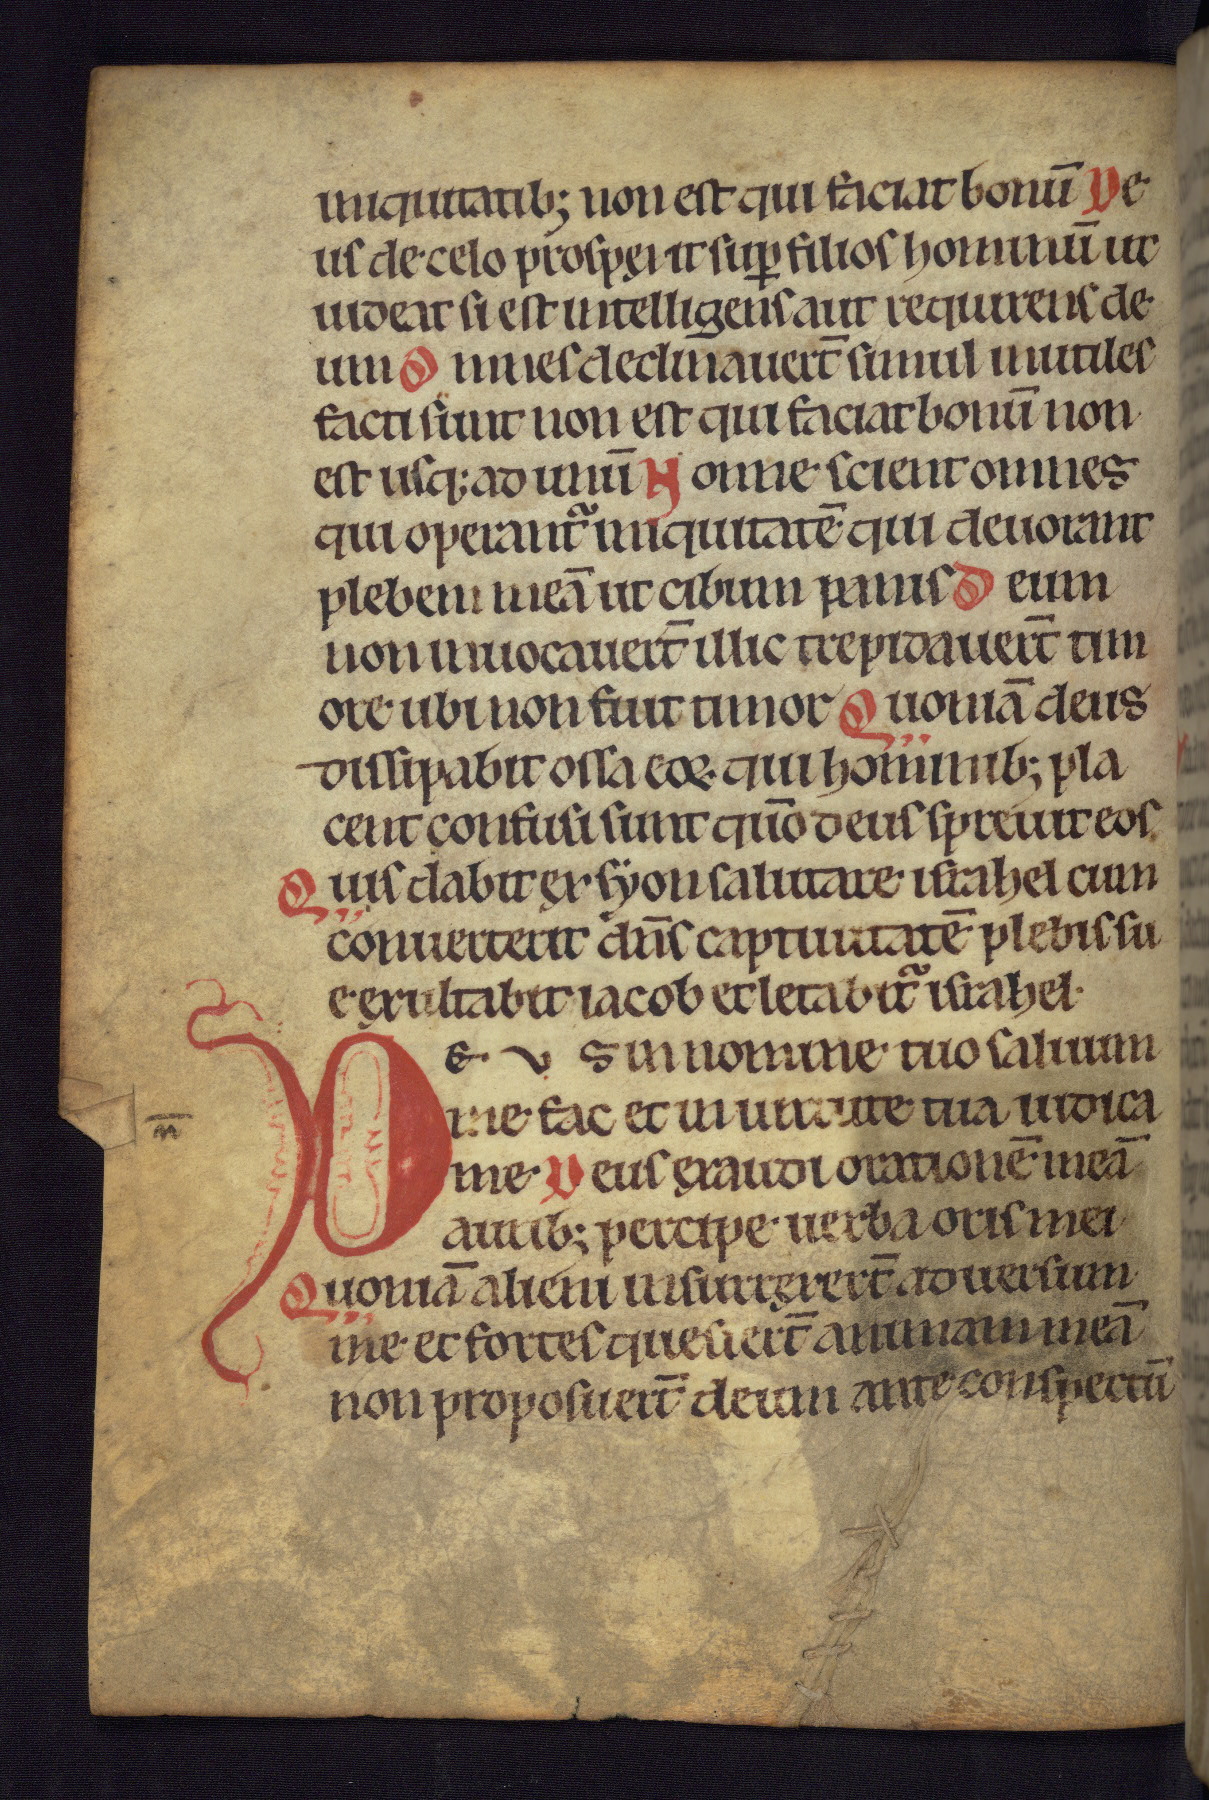 iniquitatib; non est qui faciat bonū De
us de celo prosperit sup̱ filios hominū ut
uideat si est intelligens aut requirens de
um Omnes declinauert̄ simul inutiles
facti sunt non est qui faciat bonū non
est usq; ad unū Nonne scient omnes
qui operant̃ iniquitatē qui deuorant
plebem meā ut cibum panis Deum
non inuocauert̄ illic trepidauert̄ tim
ore ubi non fuit timor Quoniā deus
dissipabit ossa eoꝝ qui hominib; pla
cent confusi sunt qūo deus spreuit eos
Quis dabit ex syon salutare israhel cum
conuerterit dn̄s captiuitatē plebis su
e exultabit iacob et letabit̃ israhel
DEVS in nomine tuo saluum
me fac et in uirtute tua iudica
m̄
me Deus exaudi orationē meā
aurib; percipe uerba oris mei
Quoniā alieni insurrexert̄ aduersum
me et fortes quesiert̄ animam meā
non proposuert̄ deum ante conspectū